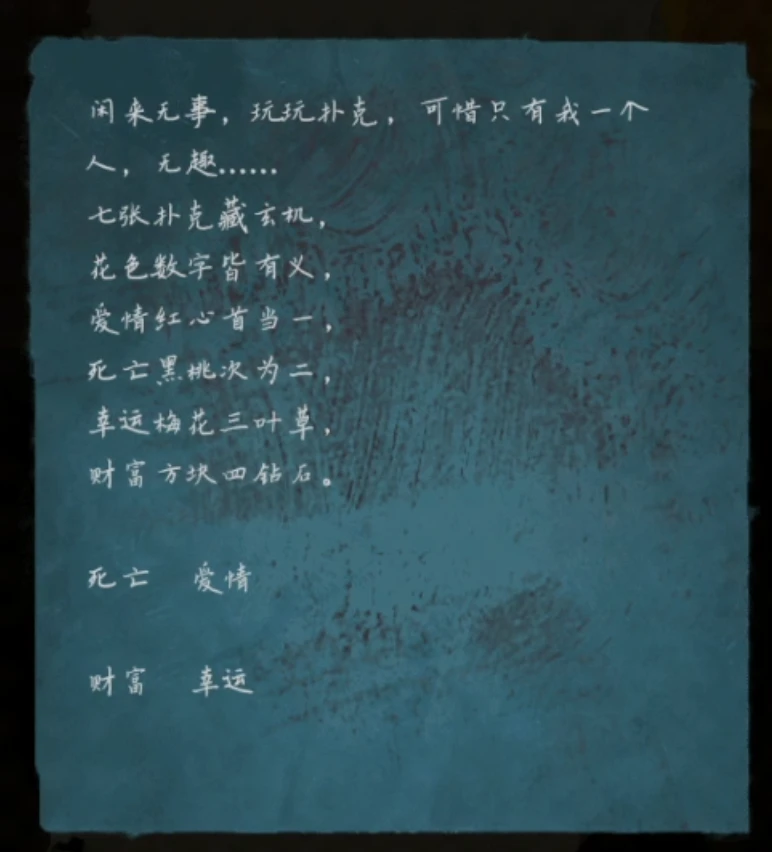 闲来无事，玩玩扑克，可惜只有我一个
人，无趣……
七张扑克藏玄机，
花色数字皆有义，
爱情红心首当一，
死亡黑桃次为二，
幸运梅花三叶草，
财富方块四钻石。
死亡 爱情
财富 幸运